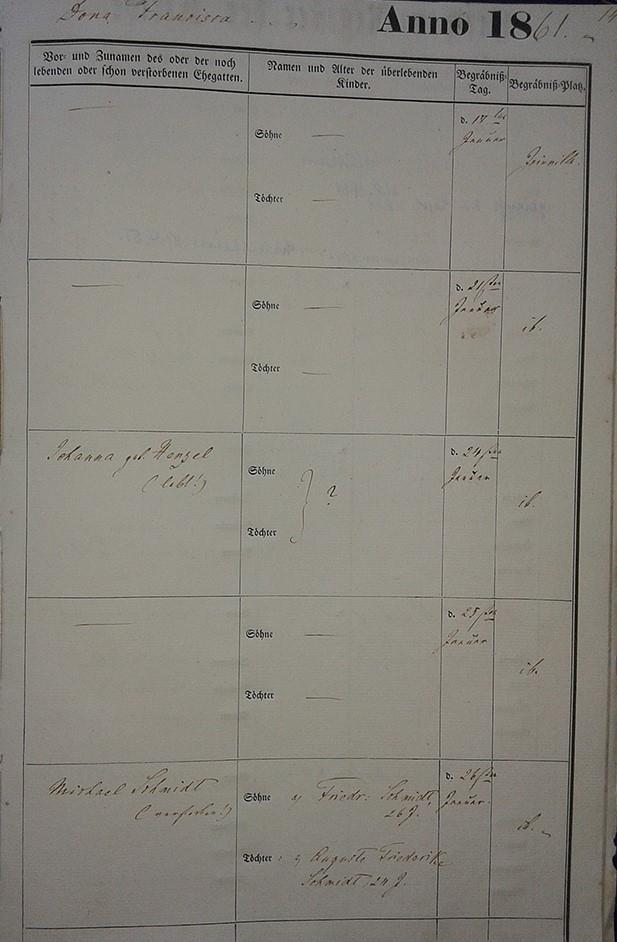 Dona Francisca . . . .
Anno 1861.
Vor- und Zunamen des oder der noch
lebenden oder schon verstorbenen Ehegatten.
Namen und Alter der überlebenden
Kinder.
Begräbniß-
Tag.
Begräbniß-Platz.
—
Söhne —
Töchter —
d. 17ten
Januar
Joinville.
—
Söhne —
Töchter —
d. 21sten
Januar
ib.
Johanna geb. Henzel
(lebt!)
Söhne
Töchter
} ?
d. 24sten
Januar
ib.
—
Söhne —
Töchter —
d. 25sten
Januar
ib.
Michael Schmidt
(verstorben!)
Söhne Friedr: Schmidt,
26 J.
Töchter: Auguste Friederike
Schmidt, 24 J.
d. 26sten
Januar.
ib.